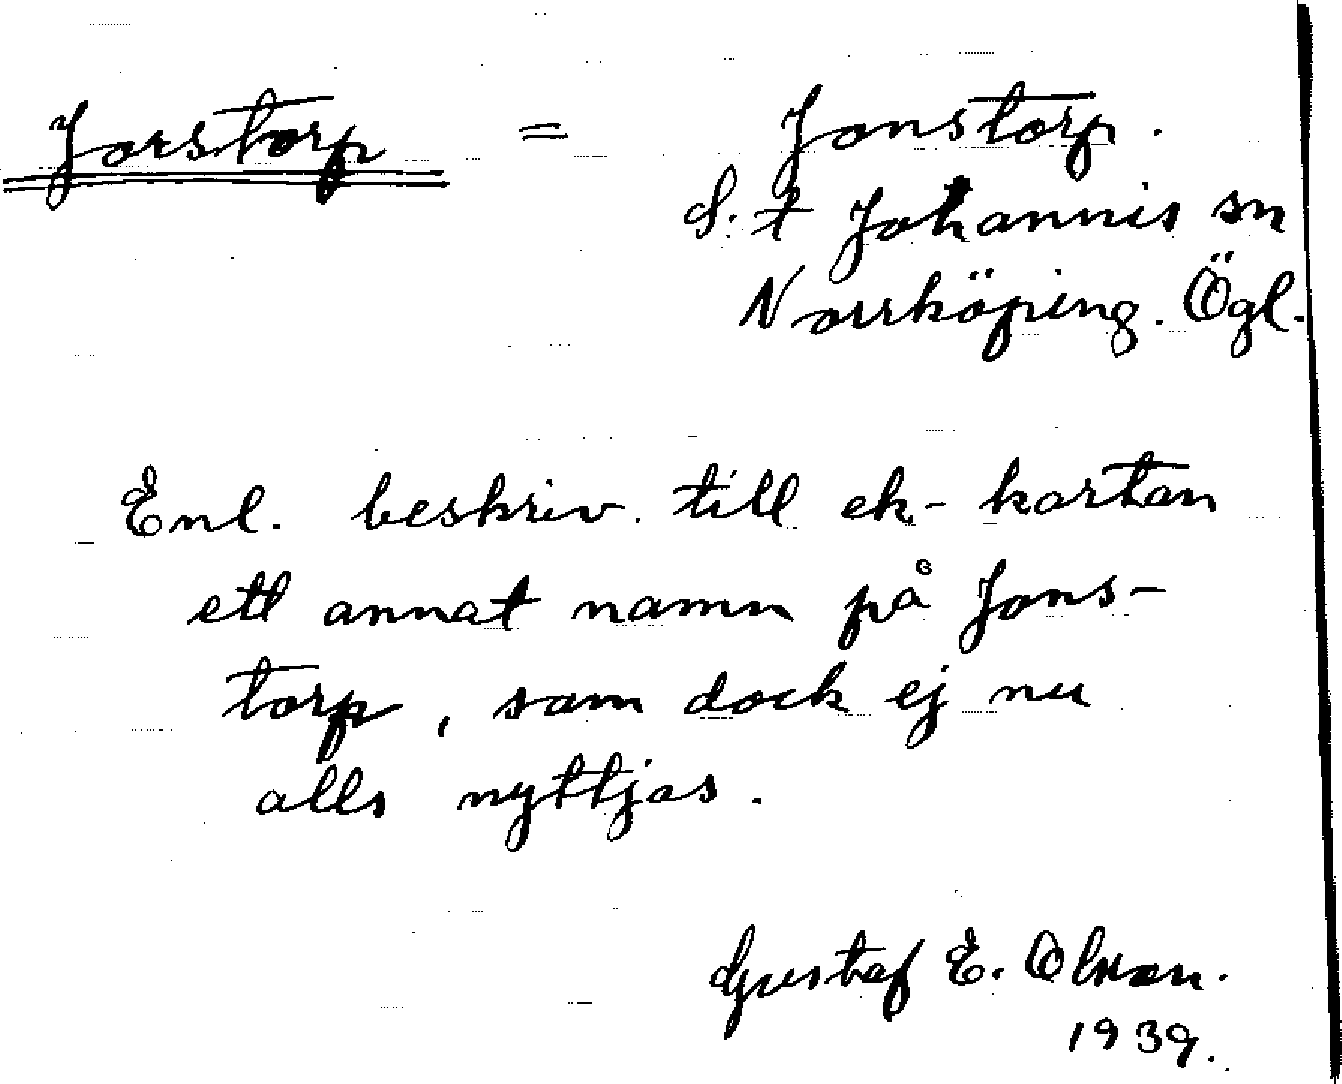 Jorstorp = Jonstorp.
S:t Johannis sn
Norrköping. Ögl.
Enl. beskriv. till ek-kartan
ett annat namn på Jons-
torp, som dock ej nu
alls nyttjas.
Gustaf E. Olsson.
1939.